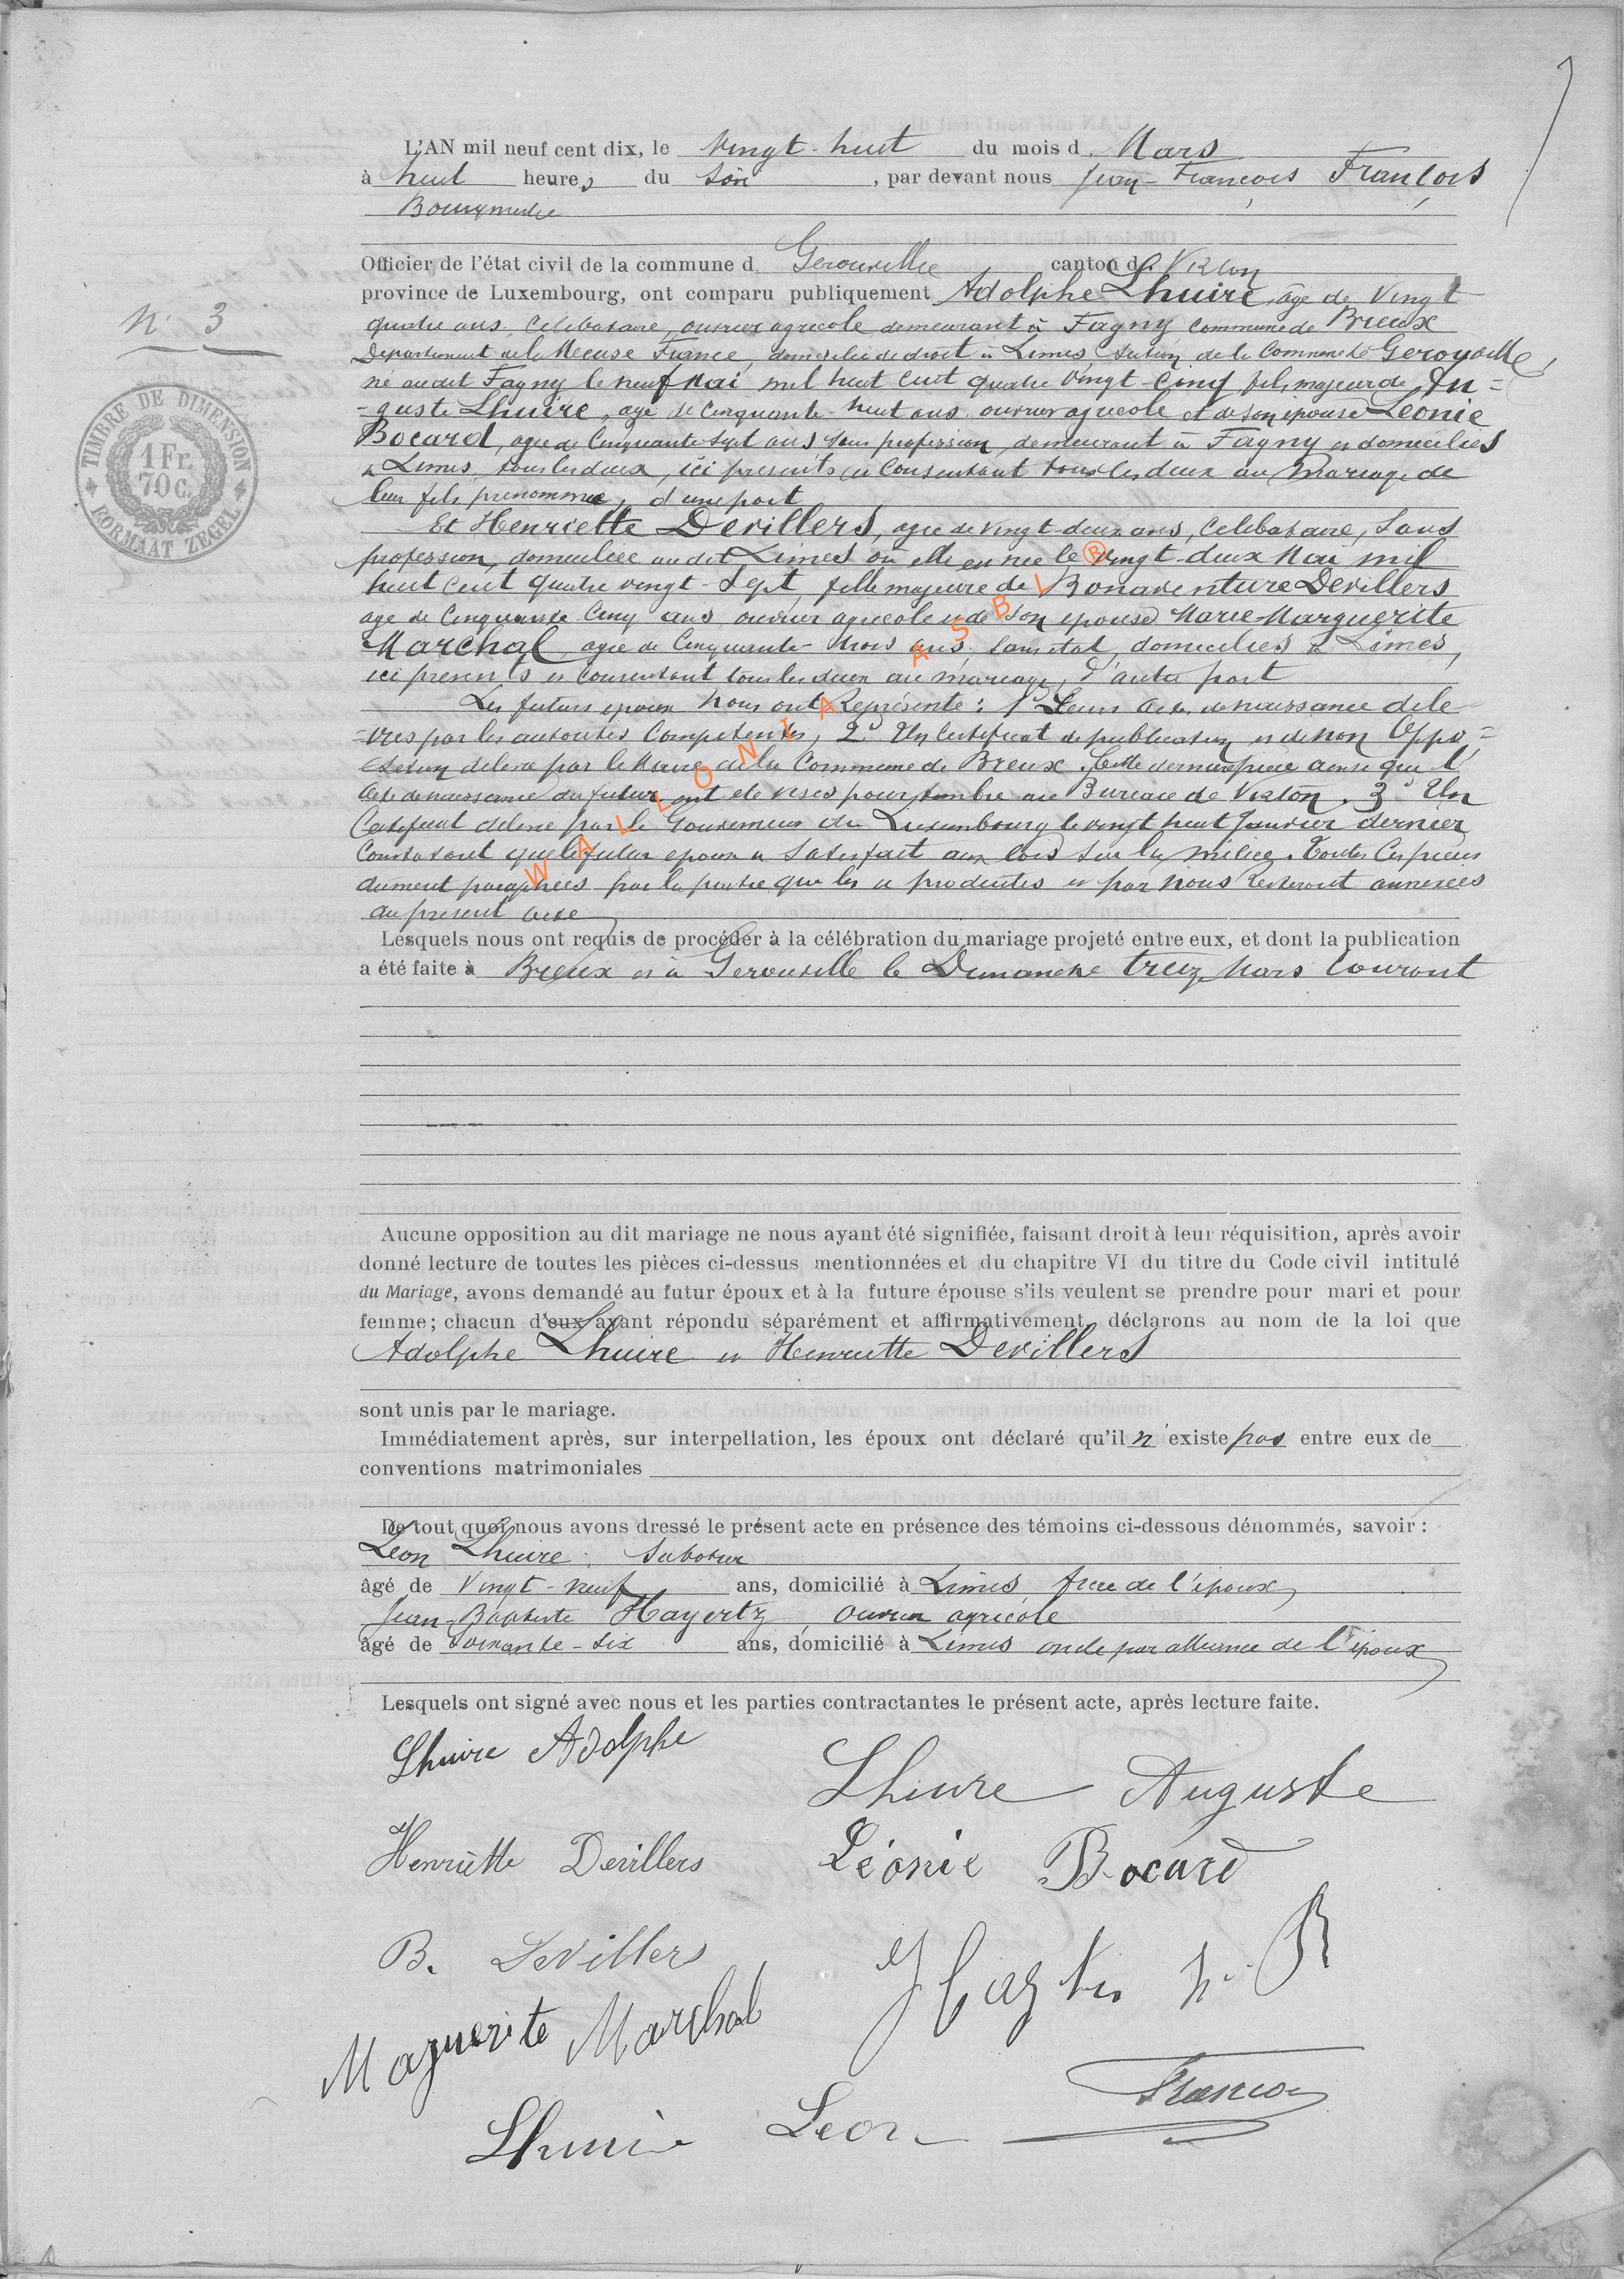 L'AN mil neuf cent dix, le Vingt-huit du mois d Mars
à huit heures du Soir, par devant nous Jean-François François
Bourgmestre
Officier de l'état civil de la commune d Gerouville canton de Virton
N° 3
province de Luxembourg, ont comparu publiquement Adolphe Lhuire, âgé de Vingt
quatre ans, Celibataire, ouvrier agricole demeurant à Fagny Commune de Breux
Departement de la Meuse France, domicilié de droit à Limes Section de la Commune de Gerouville,
né au dit Fagny le neuf Mai mil huit cent quatre Vingt-Cinq fils majeur de Au=
=guste Lhuire, age de Cinquante-huit ans ouvrier agricole et de son épouse Léonie
Bocard, agée de Cinquante Sept ans Sans profession, demeurant à Fagny et domiciliés
à Limes, tous les deux, ici presents et Consentant tous les deux au Mariage de
leur fils prenommé, d'une part
Et Henriette Devillers, agée de vingt-deux ans, Celibataire, Sans
profession, domiciliée au dit Limes où elle est née le vingt-deux Mai mil
huit Cent quatre vingt-Sept, fille majeure de Bonaventure Devillers
age de Cinquante Cinq ans ouvrier agricole et de Son épouse Marie-Marguerite
Marchal, agée de Cinquante-trois ans, Sans état, domiciliés à Limes,
ici presents et Consentant tous les deux au mariage, d'autre part
Les futurs epoux Nous ont Représenté: 1° Leurs Actes de naissance déli-
=vrés par les autorités Compétentes, 2° Un Certificat de publication et de non Oppo=
=sition délivré par le Maire de la Commune de Breux. Cette dernière pièce ainsi que l'
Acte de naissance du futur ont été visés pour timbre au Bureau de Virton. 3° Un
Certificat délivré par le Gouverneur du Luxembourg le vingt huit Janvier dernier
Constatant que le futur epoux a Satisfait aux lois sur la milice. Toutes Ces pièces
dûment paraphées par la partie qui les a produites et par Nous Resteront annexées
au present acte
Lesquels nous ont requis de procéder à la célébration du mariage projeté entre eux, et dont la publication
a été faite à Breux et à Gerouville le Dimanche treize Mars Courant
Aucune opposition au dit mariage ne nous ayant été signifiée, faisant droit à leur réquisition, après avoir
donné lecture de toutes les pièces ci-dessus mentionnées et du chapitre VI du titre du Code civil intitulé
du Mariage, avons demandé au futur époux et à la future épouse s'ils veulent se prendre pour mari et pour
femme; chacun d'eux ayant répondu séparément et affirmativement, déclarons au nom de la loi que
Adolphe Lhuire et Henriette Devillers
sont unis par le mariage.
Immédiatement après, sur interpellation, les époux ont déclaré qu'il n'existe pas entre eux de
conventions matrimoniales
De tout quoi nous avons dressé le présent acte en présence des témoins ci-dessous dénommés, savoir:
Léon Lhuire, Sabotier
âgé de Vingt-neuf ans, domicilié à Limes frère de l'époux,
Jean-Baptiste Hayertz, ouvrier agricole
âgé de Soixante-Six ans, domicilié à Limes oncle par alliance de l'époux
Lesquels ont signé avec nous et les parties contractantes le présent acte, après lecture faite.
Lhuire Adolphe
Lhuire Auguste
Henriette Devillers
Léonie Bocard
B. Devillers
Marguerite Marchal
François
Lhuire Léon
TIMBRE DE DIMENSION
1 Fr.
70 c.
FORMAAT ZEGEL
WALLONIA ASBL ®